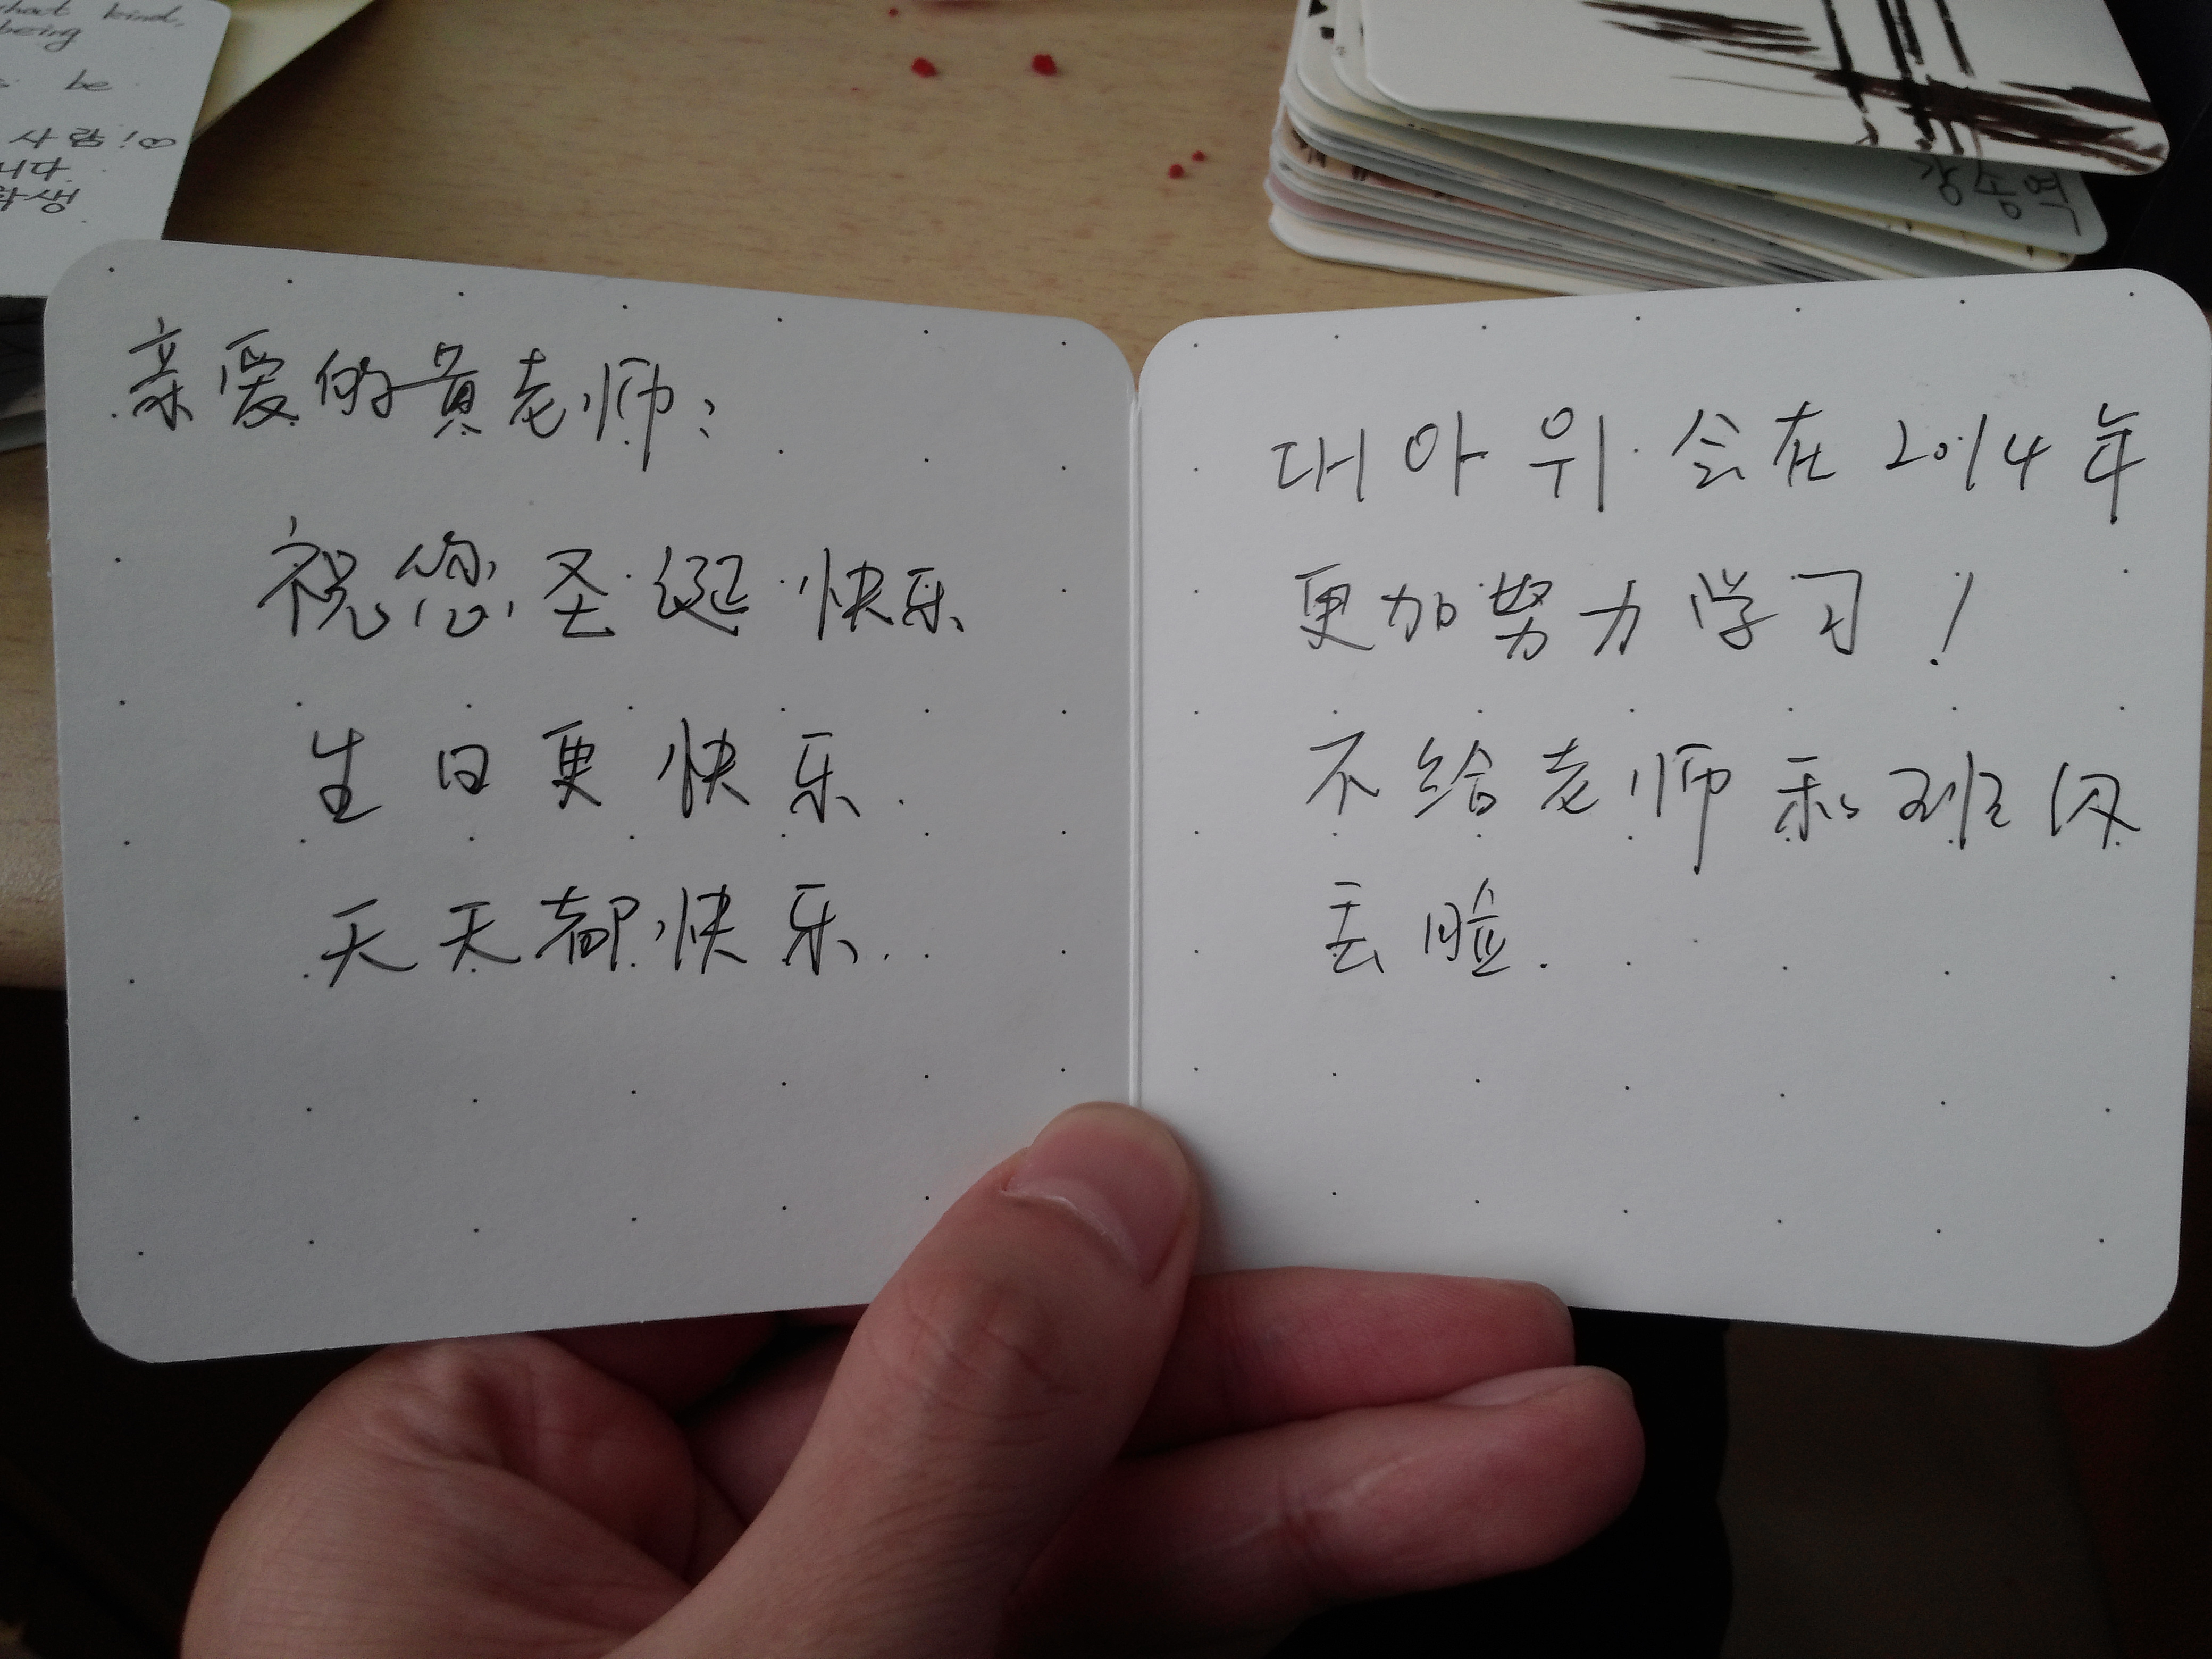 what kind,
being
be
사람!♡
니다
학생
강송역
亲爱的黄老师:
祝您圣诞快乐
生日更快乐.
天天都快乐.
대아위 会在2014年
更加努力学习!
不给老师和班级
丢脸.